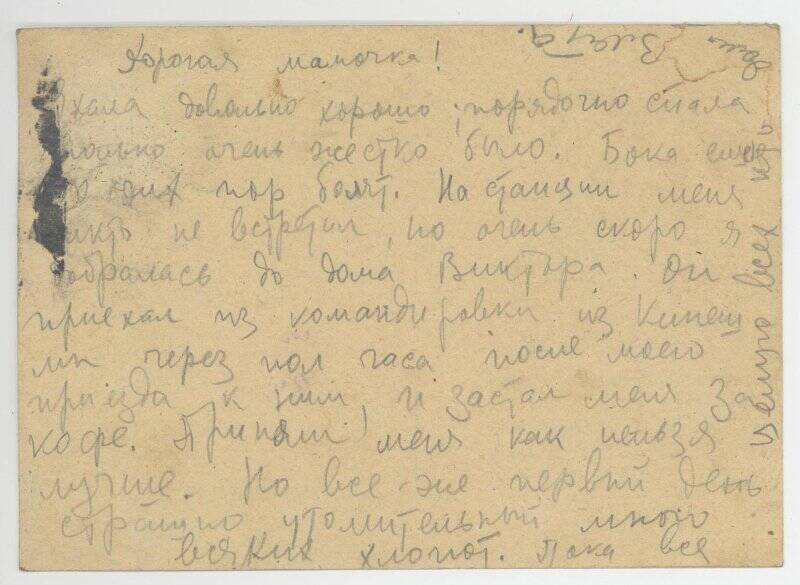 Дорогая мамочка!
Ехала довольно хорошо; порядочно спала
только очень жестко было. Бока еще
до сих пор болят. На станции меня
никто не встретил, но очень скоро я
добралась до дома Виктора. Он
приехал из командировки из Кинеш
мы через пол часа после моего
приезда к ним, и застал меня за
кофе. Приняли меня как нельзя
лучше. Но все-же первый день
страшно утомительный много
всяких хлопот. Пока все
Целую всех
Ваша